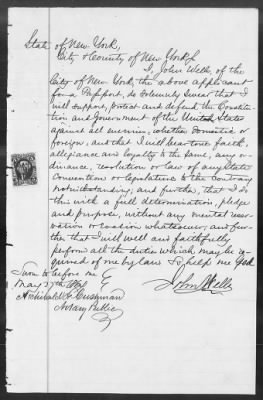 State of New York,
City & County of New York }
I, John Wells, of the
City of New York, the above applicant
for a Passport, do solemnly swear that I
will support, protect and defend the Constitu-
tion and Government of the United States
against all enemies, whether domestic or
foreign; and that I will bear true faith,
allegiance and loyalty to the same, any or-
dinance, resolution or law of any State
Convention or Legislature to the contrary
notwithstanding; and further, that I do
this with a full determination, pledge
and purpose, without any mental reser-
vation or evasion whatsoever; and fur-
ther that I will well and faithfully
perform all the duties which may be re-
quired of me by law. So help me God.
Sworn to before me
May 27th
John Wells
Archibald F. Cushman
Notary Public